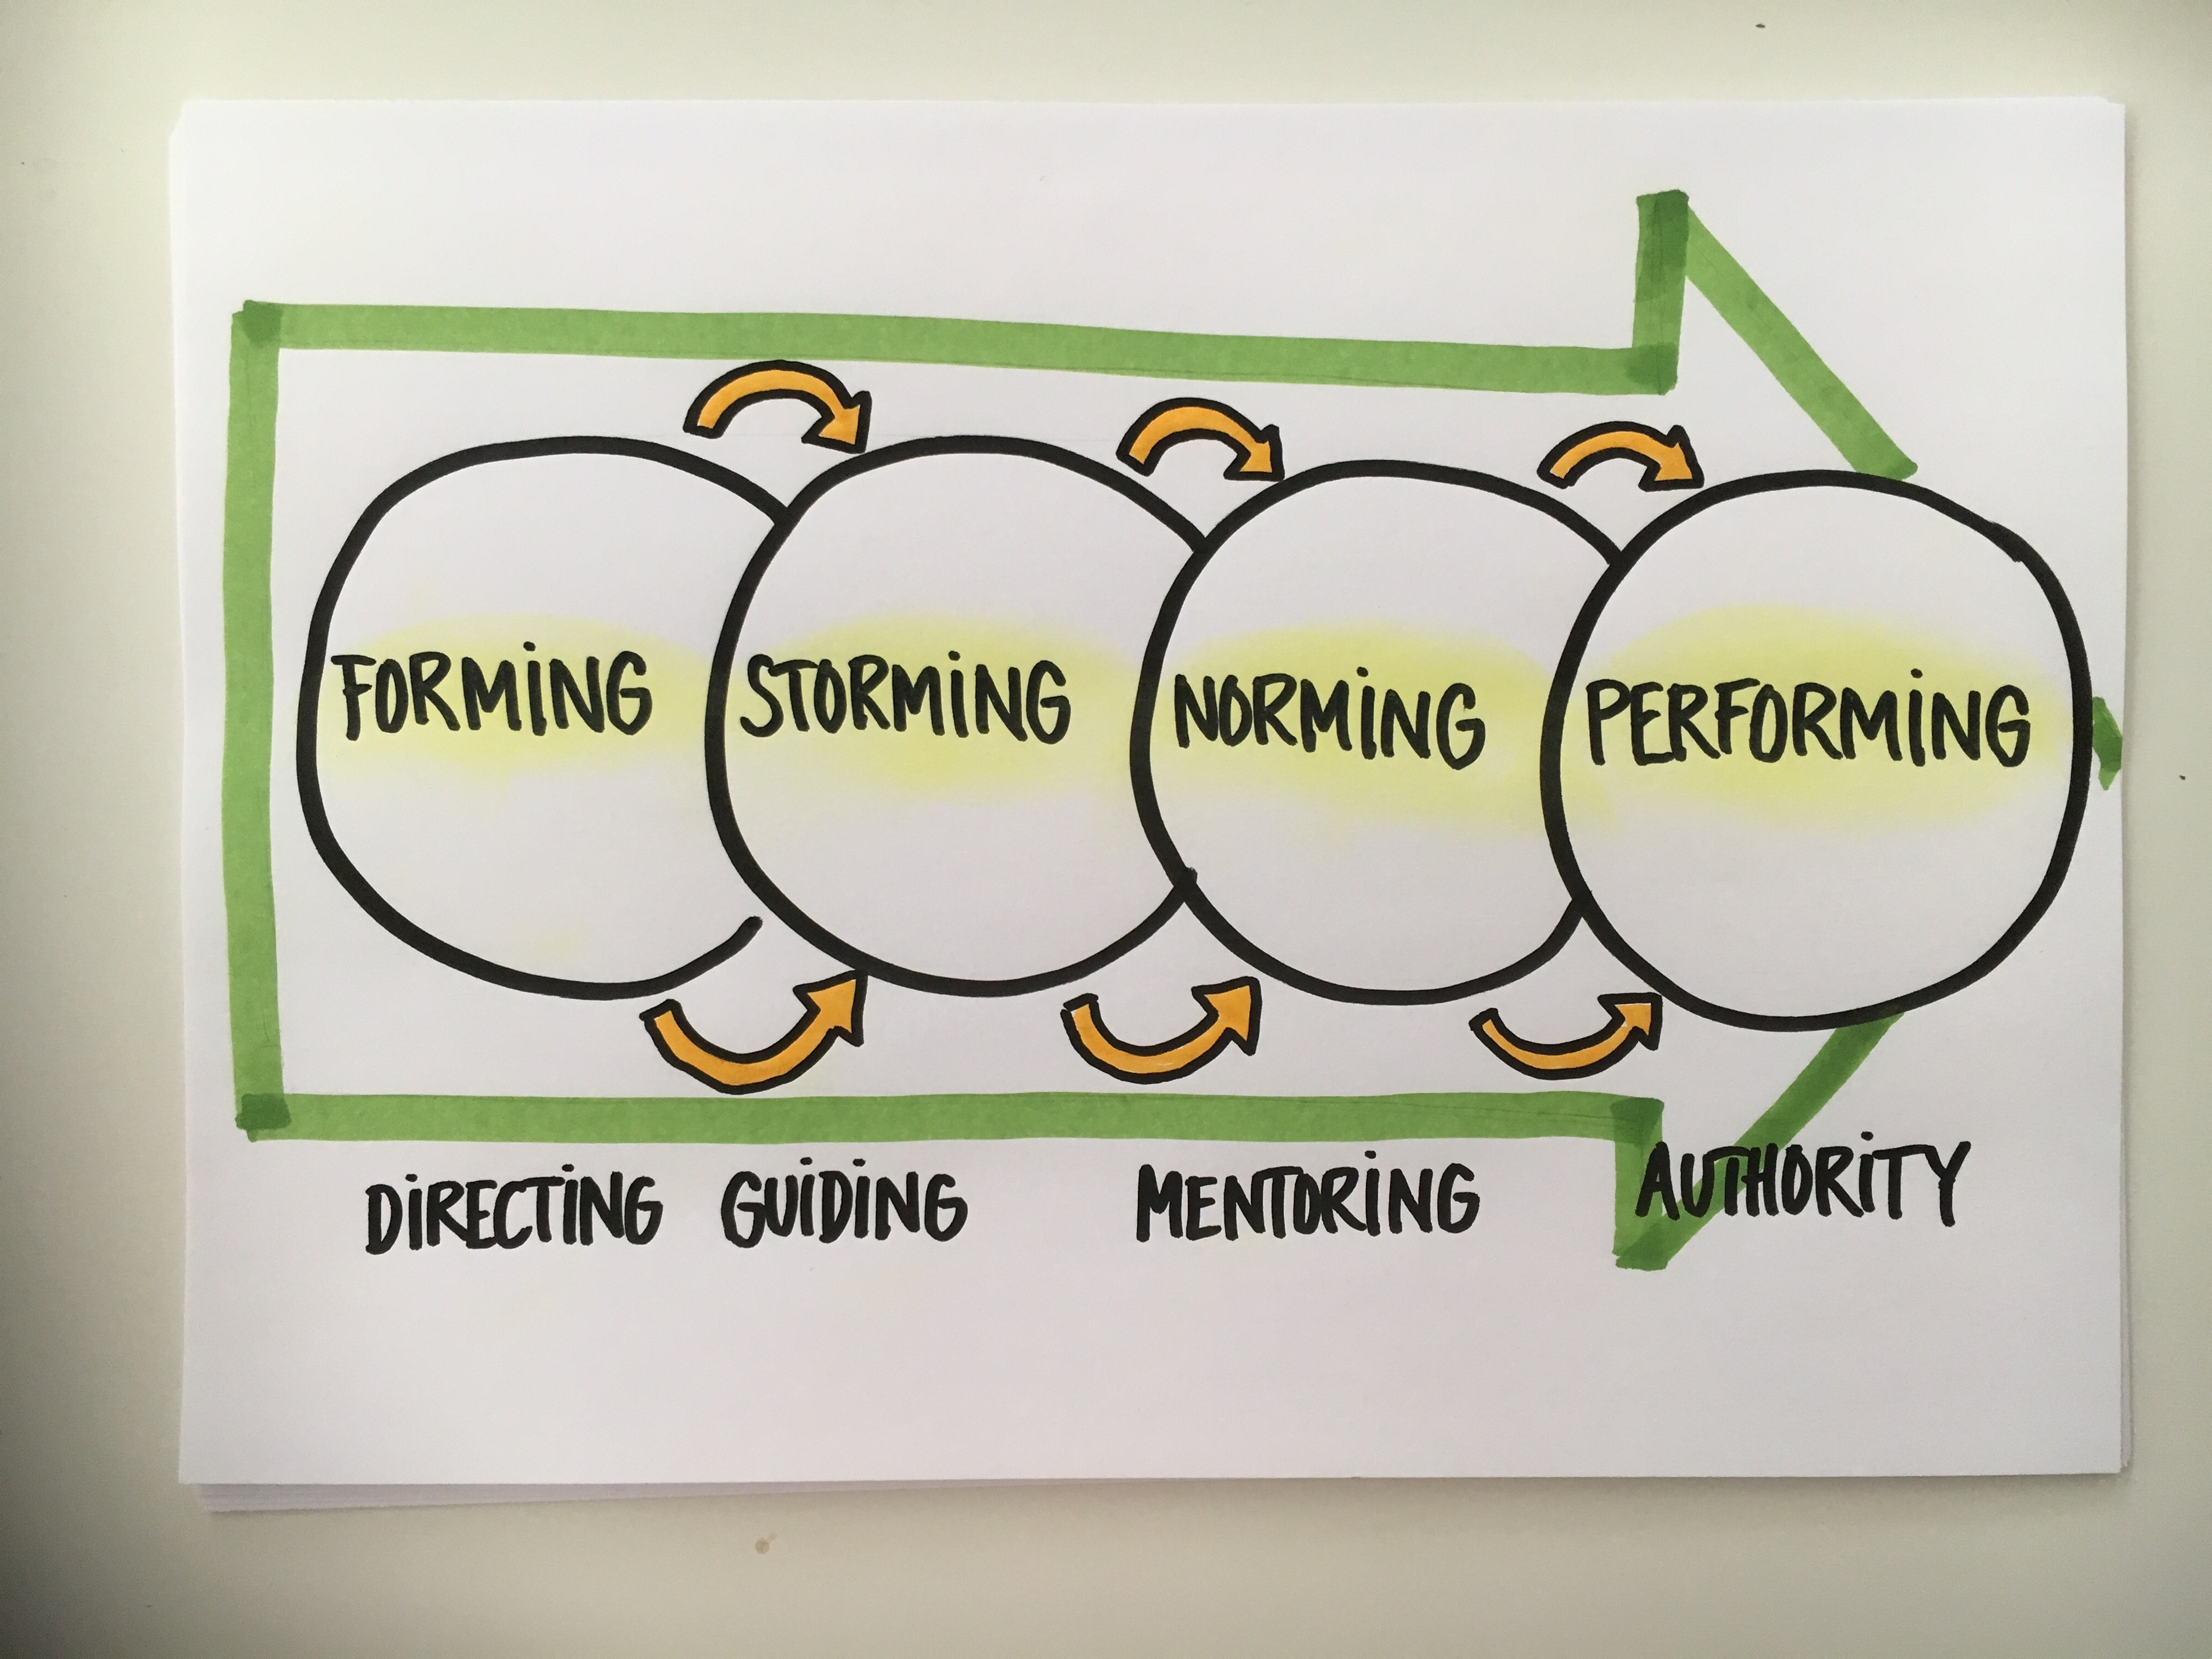 FORMING STORMING NORMING PERFORMING
DIRECTING GUIDING MENTORING AUTHORITY